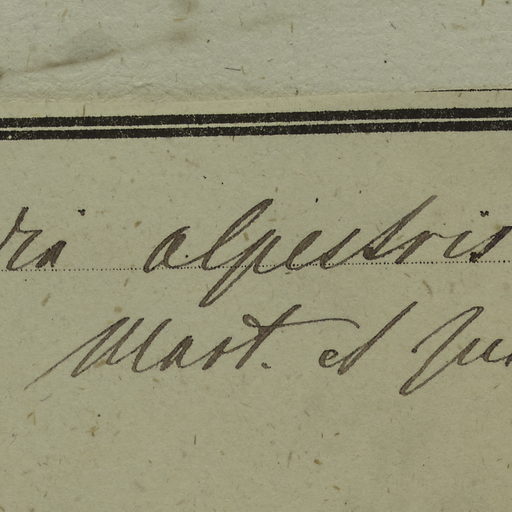 ra alpestris
Mart. et Zu